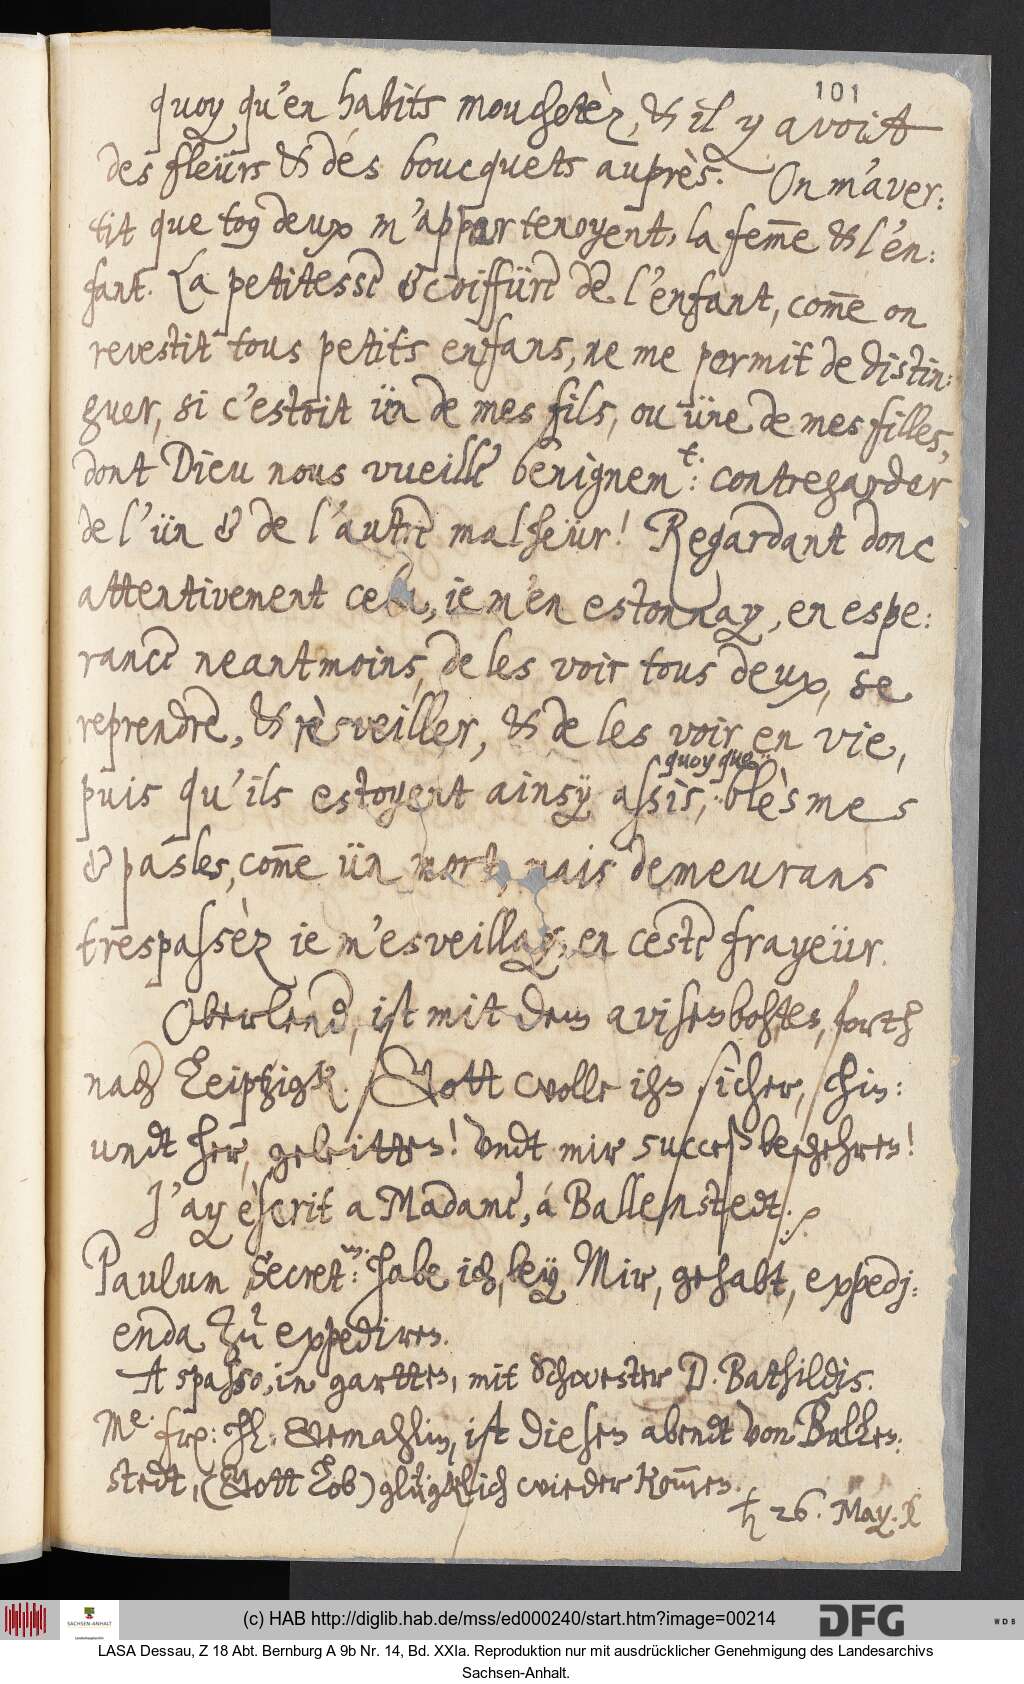 101
quoy qu'en habits mouchetèz, & il y avoit
des fleürs & dés boucquets auprès. On m'aver:
tit que tous deux m'appartenoyent, la fem̅e & l'en:
fant. La petitesse & coiffüre de l'enfant, com̅e on
revestit tous petits enfans, ne me permit de distin:
guer, si c'estoit ün de mes fils, ou üne de mes filles,
dont Dieu nous vueille benignem:t. contregarder
de l'ün & de l'autre malheür! Regardant donc
attentivement cela, ie m'en estonnay, en espe:
rance neantmoins, de les voir tous deux, se
reprendre, & rèsveiller, & de les voir en vie,
quoy que
puis qu'ils estoyent ainsÿ assis, blèsmes
& pasles, com̅e ün mort, mais demeurans
trespassèz ie m'esveillay, en ceste frayeür.
Oberlend, ist mit dem avisenbohten, forth
nach Leiptzigk. Gott wolle ihn sicher, hin:
undt her, geleitten! Vndt mir success beschehren!
J'ay éscrit a Madame, á Ballenstedt.
Paulum Secret:um. habe ich, beÿ Mir, gehabt, expedj:
enda zu expediren.
A spasso, in gartten, mit Schwester D. Bathildis.
Me. frz: h. Gemahlin, ist diesen abendt von Ballen:
stedt, (Gott Lob) glügklich wieder kom̅en.
♄ 26. May.
(c) HAB http://diglib.hab.de/mss/ed000240/start.htm?image=00214
SACHSEN-ANHALT
DFG
WDB
LASA Dessau, Z 18 Abt. Bernburg A 9b Nr. 14, Bd. XXIa. Reproduktion nur mit ausdrücklicher Genehmigung des Landesarchivs
Sachsen-Anhalt.